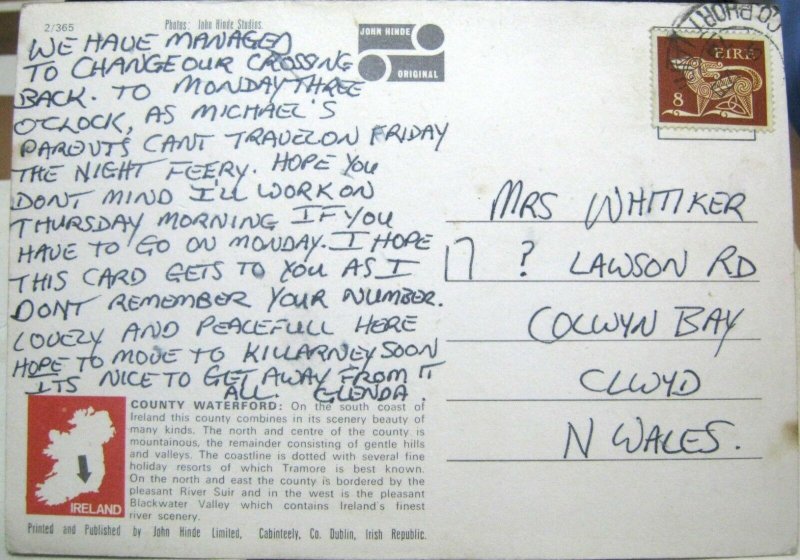 2/365
Photos: John Hinde Studios.
JOHN HINDE
ORIGINAL
WE HAVE MANAGED
TO CHANGE OUR CROSSING
BACK. TO MONDAY THREE
O'CLOCK, AS MICHAEL'S
PARENTS CANT TRAVEL ON FRIDAY
THE NIGHT FEERY. HOPE YOU
DONT MIND I'LL WORK ON
THURSDAY MORNING IF YOU
HAVE TO GO ON MONDAY. I HOPE
THIS CARD GETS TO YOU AS I
DONT REMEMBER YOUR NUMBER.
LOVELY AND PEACEFULL HERE
HOPE TO MOVE TO KILLARNEY SOON
ITS NICE TO GET AWAY FROM IT
ALL. GLENDA.
CO. PHORT
EIRE
8
MRS WHITIKER
17 ? LAWSON RD
COLWYN BAY
CLWYD
N WALES.
IRELAND
COUNTY WATERFORD: On the south coast of
Ireland this county combines in its scenery beauty of
many kinds. The north and centre of the county is
mountainous, the remainder consisting of gentle hills
and valleys. The coastline is dotted with several fine
holiday resorts of which Tramore is best known.
On the north and east the county is bordered by the
pleasant River Suir and in the west is the pleasant
Blackwater Valley which contains Ireland's finest
river scenery.
Printed and Published by John Hinde Limited, Cabinteely, Co. Dublin, Irish Republic.